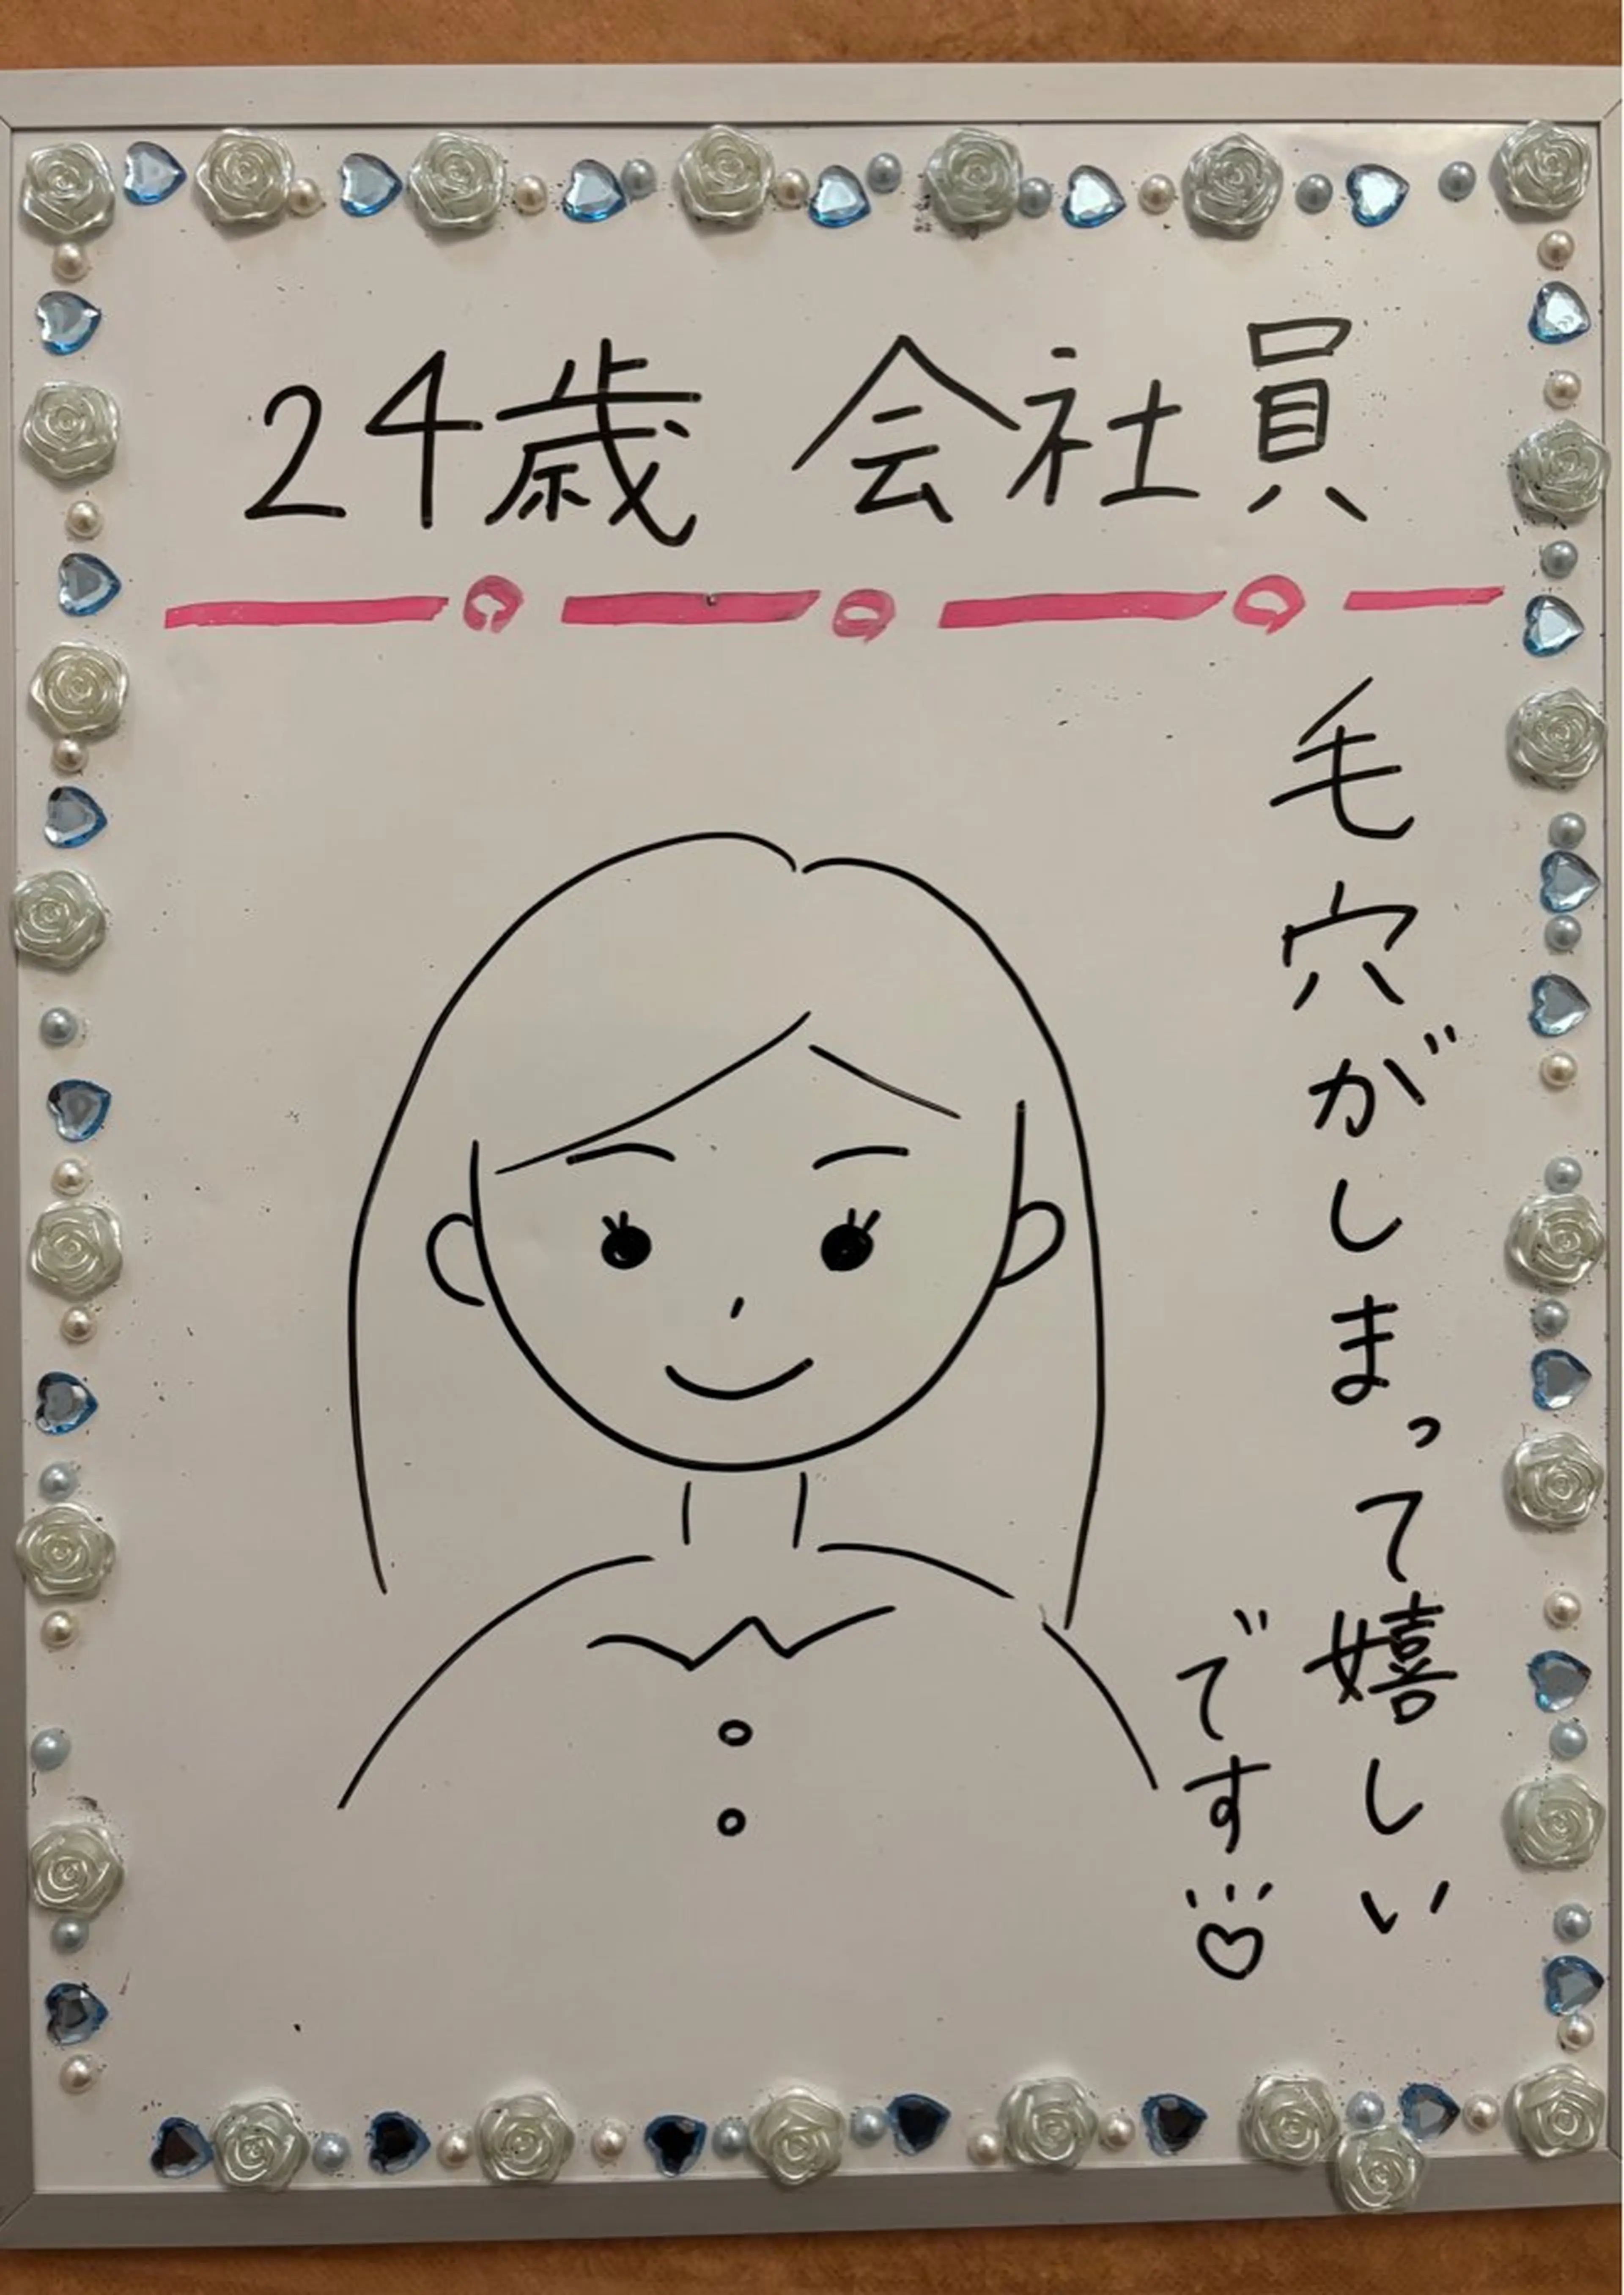 24歳 会社員
毛穴がしまって嬉しい
です♡